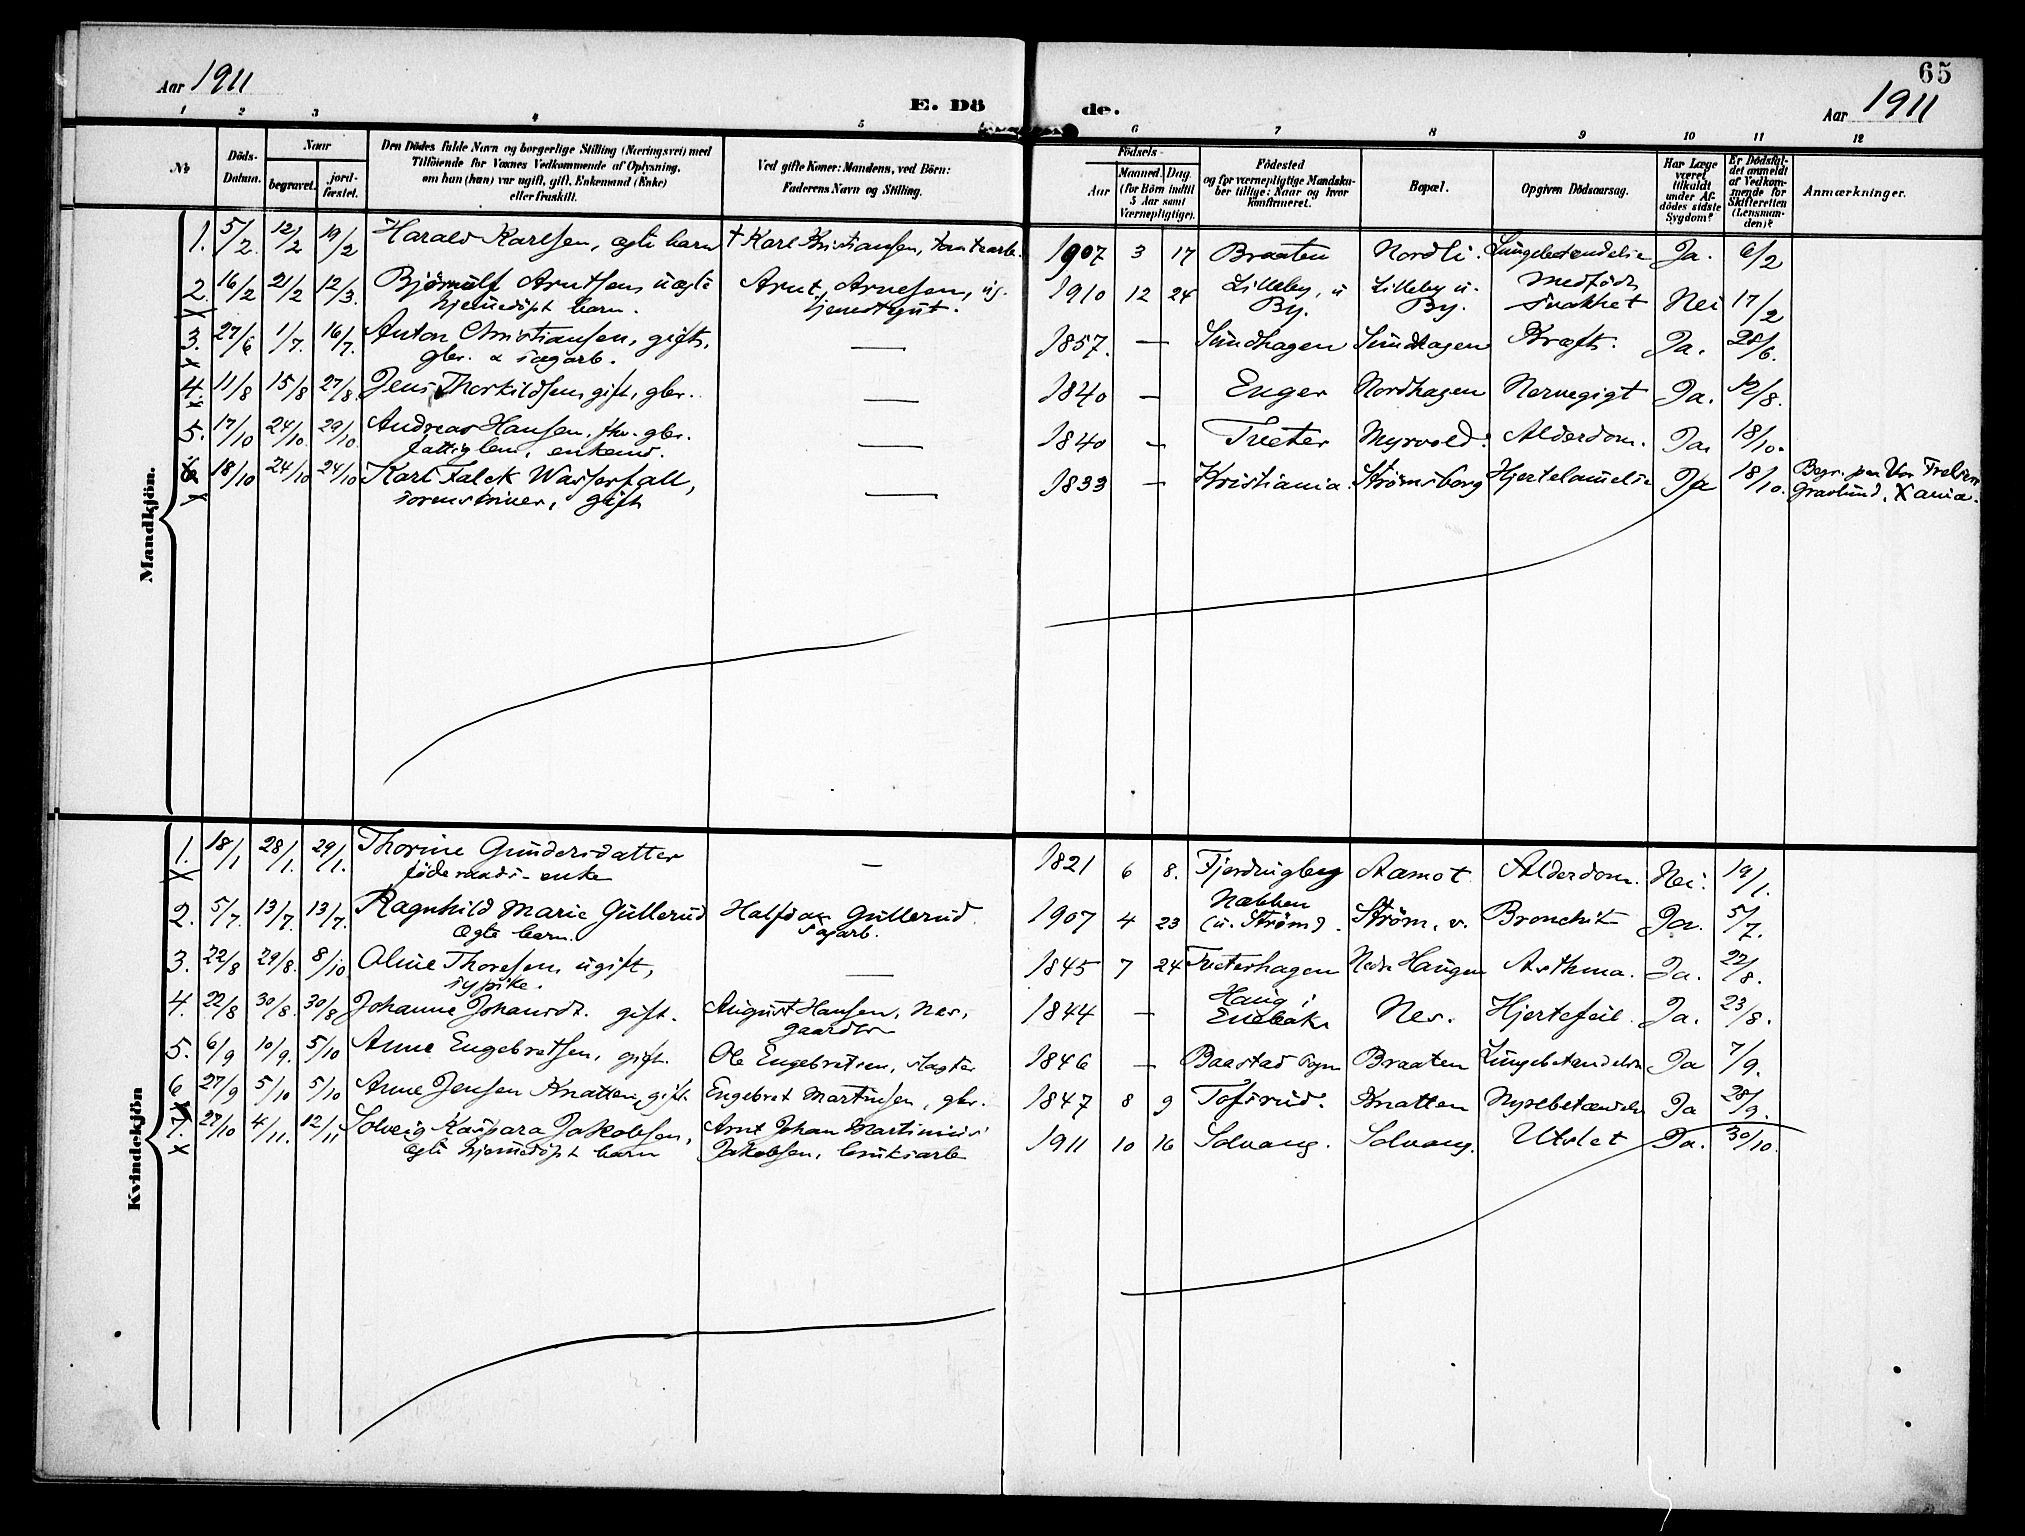 65
Aar 1911
E. Döde.
Aar 1911
1 2 3 4 5 6 7 8 9 10 11 12
No
Döds-Datum.
Naar
begravet.
jordfæstet.
Den Dödes fulde Navn og borgerlige Stilling (Næringsvei) med
Tilföiende for Voxnes Vedkommende af Oplysning,
om han (hun) var ugift, gift, Enkemand (Enke)
eller fraskilt.
Ved gifte Koner: Mandens, ved Börn:
Faderens Navn og Stilling.
Födsels-
Aar
Maaned. Dag.
(for Börn indtil
5 Aar samt
Værnepligtige).
Födested
og for værnepligtige Mandskaber
tillige: Naar og hvor
konfirmeret.
Bopæl.
Opgiven Dödsaarsag.
Har Læge
været
tilkaldt
under Afdödes
sidste
Sygdom?
Er Dödsfaldet
anmeldt
af Vedkommende
for
Skifteretten
(Lensmanden)?
Anmærkninger.
Mandkjön.
1. 5/2 12/2 19/2 Harald Karlsen, ægte barn † Karl Kristiansen, tomtearb. 1907 3 17 Braaten Nordli. Lungebetændelse Ja. 6/2
2. 16/2 21/2 12/3. Björnulf Arntsen, uægte Arnt Arnesen, ug. 1910 12 24 Lilleby, u Lilleby u. Medfödt Nei 17/2
hjemedöpt barn. tjenestgut. By. By. svakhet
3. 27/6 1/7. 16/7. Anton Christiansen, gift, — 1857. — Sundhagen Sundhagen Kræft. Ja. 28/6.
gbr. & sagarb.
4. 11/8 15/8 27/8. Jens Thorkildsen gift, gbr. — 1840 — Enger Nordhagen Nervegigt Ja. 12/8.
5. 17/10 24/10. 29/10 Andreas Hansen, fhv. gbr. — 1840 — Tveter Myrvold. Alderdom. Ja 18/10.
fattiglem, enkem.
6 18/10 24/10 24/10 Karl Falck Wasserfall, — 1833 — Kristiania. Strömsborg Hjertelamelse Ja 18/10. Begr. paa Vor Frelsers
sorenskriver, gift Gravlund, Xania.
Kvindekjön
1. 18/1 28/1. 29/1. Thorine Gundersdatter — 1821 6 8. Fjerdingbey Aamot Alderdom. Nei. 19/1.
föderaads-enke
2. 5/7. 13/7. 13/7. Ragnhild Marie Gullerud Halfdan Gullerud 1907 4 23 Nabben Ström. v. Bronchit Ja. 5/7.
Ægte barn. sagarb. (u. Ström).
3. 22/8 29/8. 8/10 Oline Thoresen, ugift, — 1845 7 24 Tveterhagen Nedre Haugen Asthma. Ja. 22/8.
sypike.
4. 22/8 30/8. 30/8 Johanne Johansdt. gift. August Hansen, Nes, 1844 — Haug i Nes. Hjertefeil. Ja. 23/8.
gaardbr. Enebak
5. 6/9 10/9. 5/10 Anne Engebretsen, gift. Ole Engebretsen, slagter 1846 — Baastad sogn Braaten Lungebetændelse Ja 7/9.
6 27/9 5/10 5/10 Anne Jensen Knatten, gift. Engebret Martinsen, gbr. 1847 8 9 Tofsrud. Knatten Nyrebetændelse Ja 28/9.
7. 27/10 4/11. 12/11 Solveig Kaspara Jakobsen, Arnt Johan Martinius 1911 10 16 Solvang. Solvang. Utslet Ja. 30/10.
Ægte hjemedöpt barn Jakobsen, bruksarb